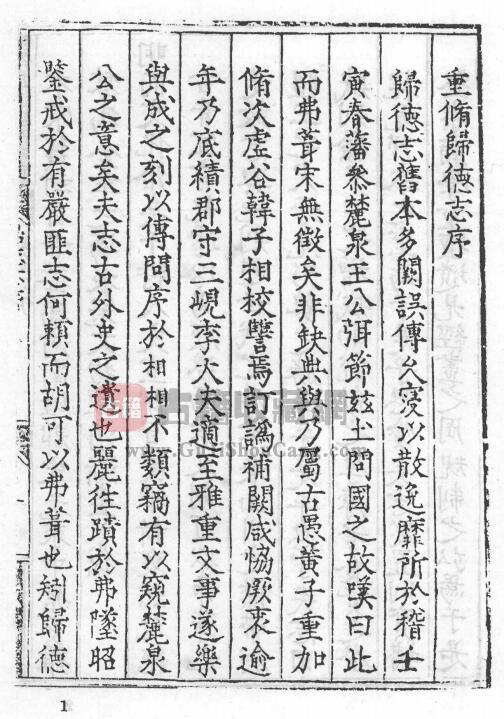 重脩歸德志序
歸德志舊本多闕誤傳久寖以散逸靡所於稽壬
寅春藩叅麓泉王公弭節兹土問國之故嘆曰此
而弗葺宋無徵矣非缺典與乃屬古愚黃子重加
脩次虛谷韓子相校讐焉訂譌補闕咸恊厥衷逾
年乃底績郡守三峴李大夫適至雅重文事遂樂
與成之刻以傳問序於相相不類竊有以窺麓泉
公之意矣夫志古外史之遺也麗徃蹟於弗墜昭
鑒戒於有嚴匪志何賴而胡可以弗葺也矧歸德
古籍
古書收藏網
www.GuJiShouCang.com
1